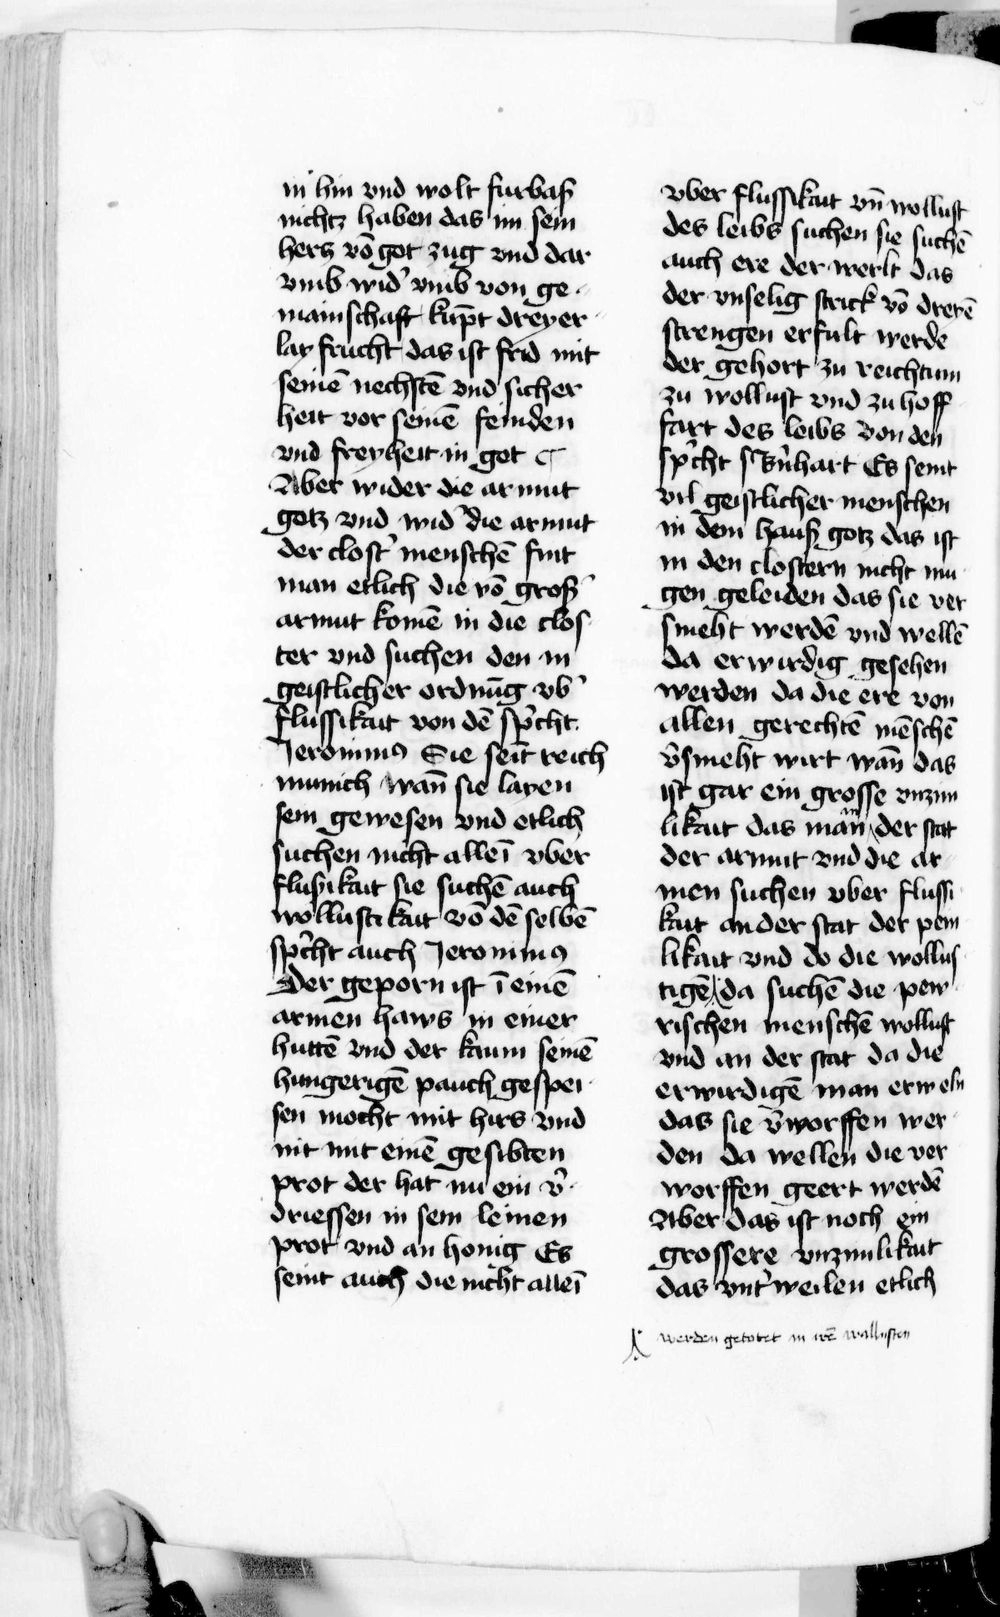 in hin vnd wolt furbaß
nichtz haben das im sein
hertz vō got zug vnd dar
vmb wid' vmb von ge-
mainschaft kūpt dreyer
lay frucht das ist frid mit
seinē nechstē vnd sicher
heit vor seinē feinden
vnd freyheit in got
Aber wider die armut
gotz vnd wid' die armut
der clost' menschē fint
man etlich die vō groß'
armut komē in die clos
ter vnd suchen den in
geistlicher ordnūg vb'
flussikait von dē sp'cht
Jeronimus Sie seīt reich
munich wan̄ sie layen
sein gewesen vnd etlich
suchen nicht alleī vber
flußikait sie suchē auch
wollustikait vō dē selbē
sp'cht auch Jeronimus
Der geporn ist ī einē
armen haws in einer
huttē vnd der kaum seinē
hungerigē pauch gespei-
sen mocht mit hirs vnd
nit mit einē gesibten
prot der hat nu ein v'-
driessen in sem leinen
prot vnd an honig Es
seint auch die nicht alleī
vber flussikait vn̄ wollust
des leibs suchen sie suchē
auch ere der werlt das
der vnselig strick vō dreiē
strengen erfult werde
der gehort zu reichtum
zu wollust vnd zu hoff
fart des leibs von den
sp'cht s' b'nhart Es seint
vil geistlicher menschen
in dem hauß gotz das ist
in den clostern nicht mu
gen geleiden das sie ver
smeht werdē vnd wellē
da erwirdig gesehen
werden da die ere von
allen gerechtē mēschē
v'smeht wirt wan̄ das
ist gar ein grosse vnzim
likait das man in der stat
der armut vnd die ar-
men suchen vber flussi
kait an der stat der pein
likait vnd do die wollus
tigē da suchē die pew-
rischen menschē wollust
vnd an der stat da die
erwirdigē man erweln
das sie v'worffen wer-
den da wellen die ver
worffen geert werdē
Aber das ist noch ein
grossere vnzimlikait
das vnt'weilen etlich
werden getotet in irē wallusten